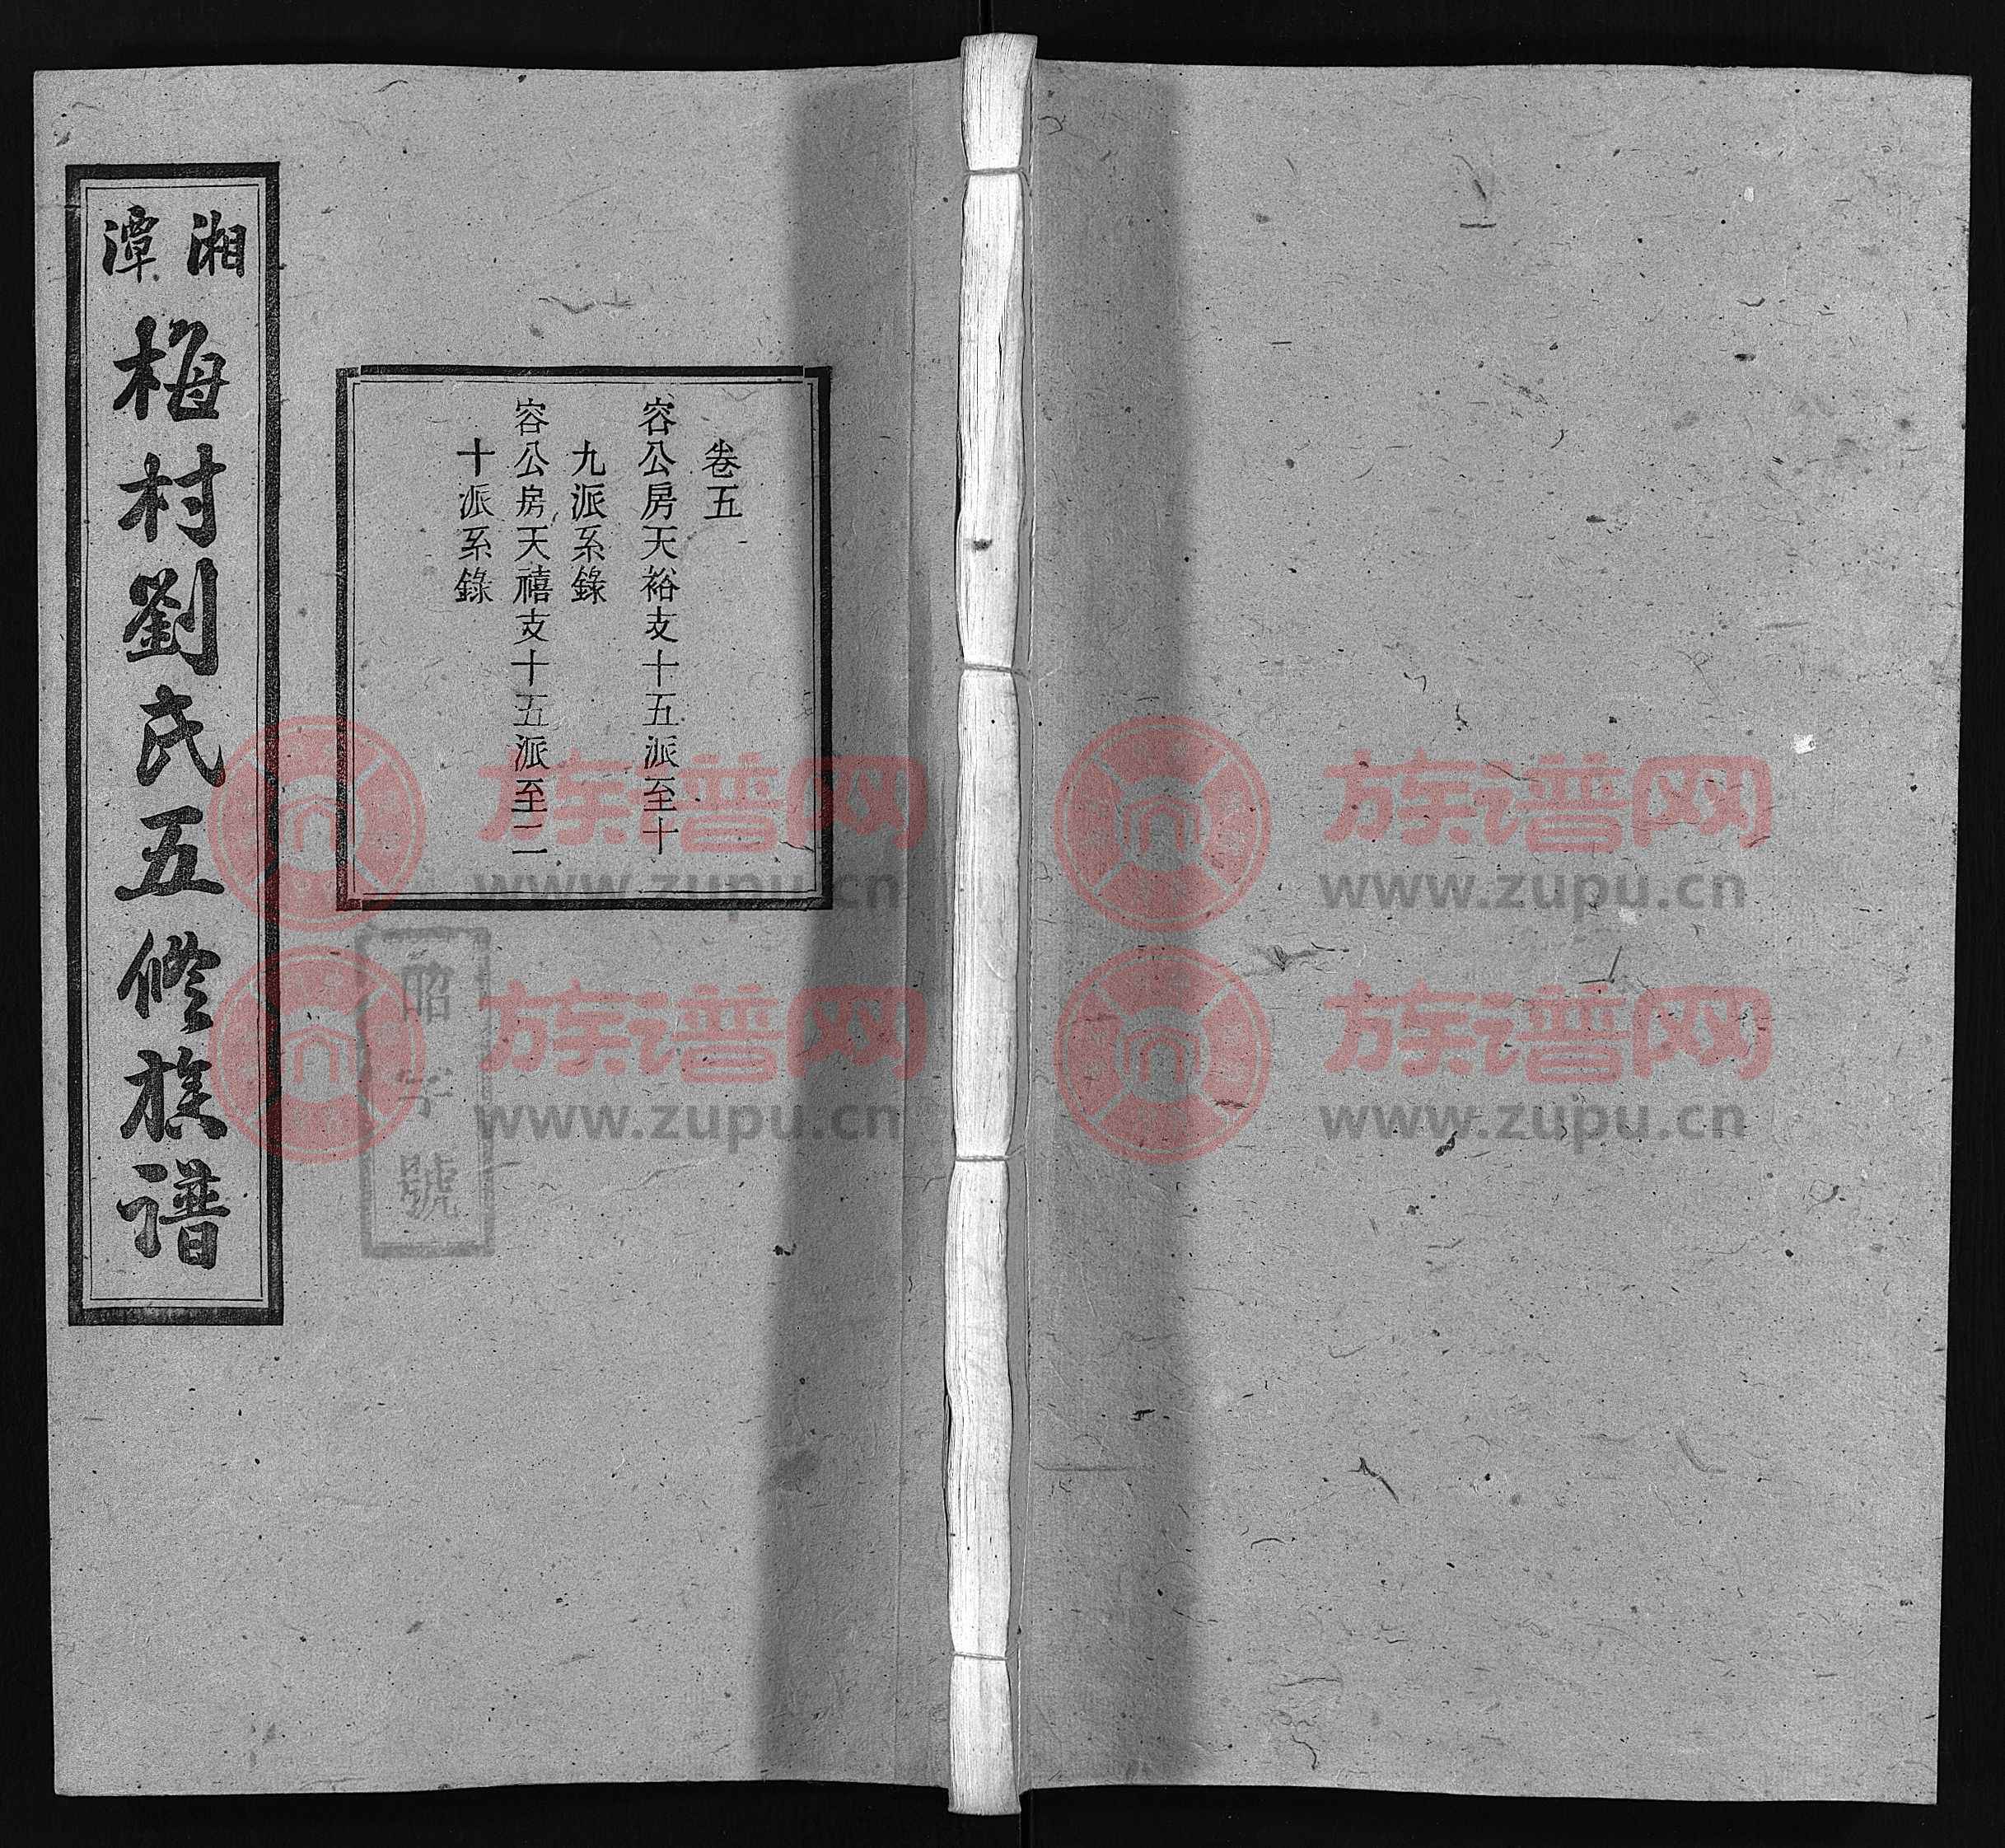 湘潭
梅村劉氏五修族譜
卷五
容公房天裕支十五派至十
九派系錄
容公房天禧支十五派至二
十派系錄
昭字號
族谱网
www.zupu.cn
族谱网
www.zupu.cn
族谱网
www.zupu.cn
族谱网
www.zupu.cn